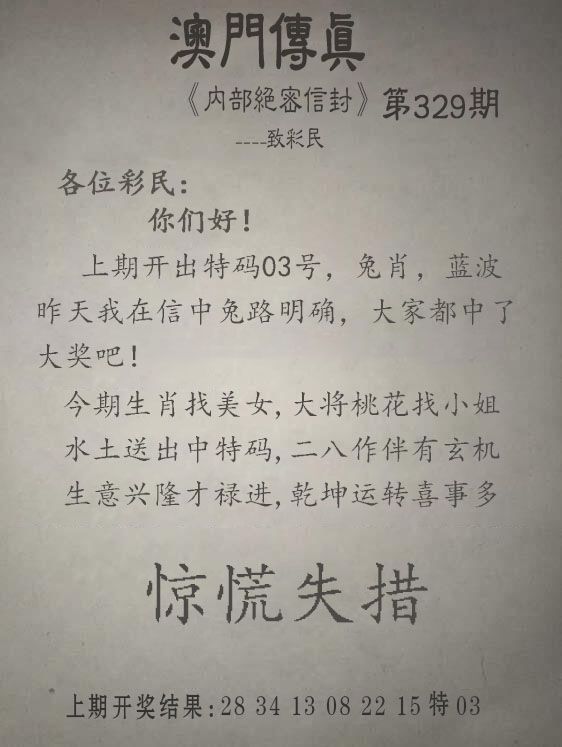 澳門傳真
《内部絕密信封》第329期
----致彩民
各位彩民：
你们好！
上期开出特码03号，兔肖，蓝波
昨天我在信中兔路明确，大家都中了
大奖吧！
今期生肖找美女,大将桃花找小姐
水土送出中特码,二八作伴有玄机
生意兴隆才禄进,乾坤运转喜事多
惊慌失措
上期开奖结果:28 34 13 08 22 15特03